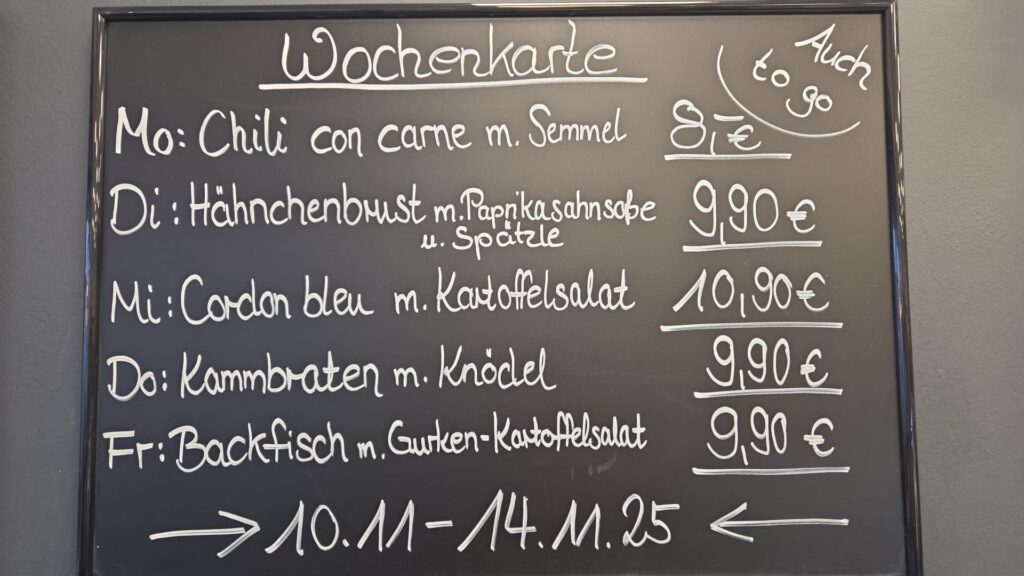 Wochenkarte
Auch
to go
Mo: Chili con carne m. Semmel 8,-€
Di: Hähnchenbrust m. Paprikasahnsoße 9,90 €
u. Spätzle
Mi: Cordon bleu m. Kartoffelsalat 10,90 €
Do: Kammbraten m. Knödel 9,90 €
Fr: Backfisch m. Gurken-Kartoffelsalat 9,90 €
→ 10.11 - 14.11.25 ←